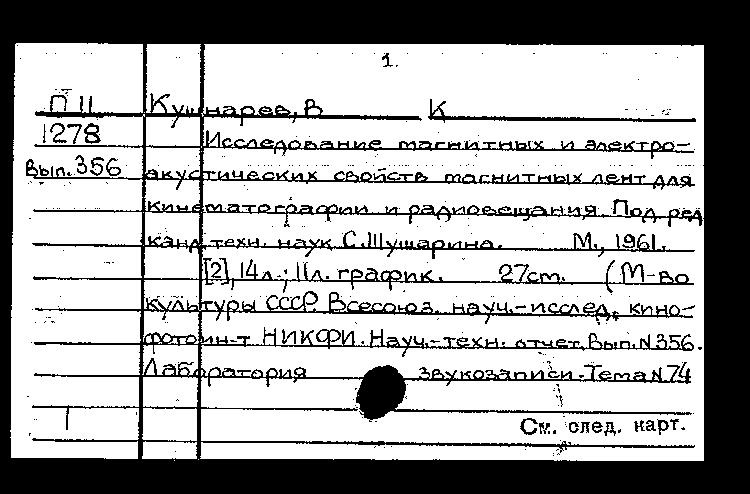 1.
П 11 Кушнарев, В К
1278 Исследование магнитных и электро-
Вып. 356 акустических свойств магнитных лент для
кинематографии и радиовещания. Под ред
канд. техн. наук С. Шушарина. М., 1961.
[2], 14 л.; 11 л. график. 27 cm. (М-во
культуры СССР. Всесоюз. науч.-исслед. кино-
фотоин-т НИКФИ. Науч.-техн. отчет. Вып. N 356.
Лаборатория звукозаписи. Тема N 74
1 См. след. карт.